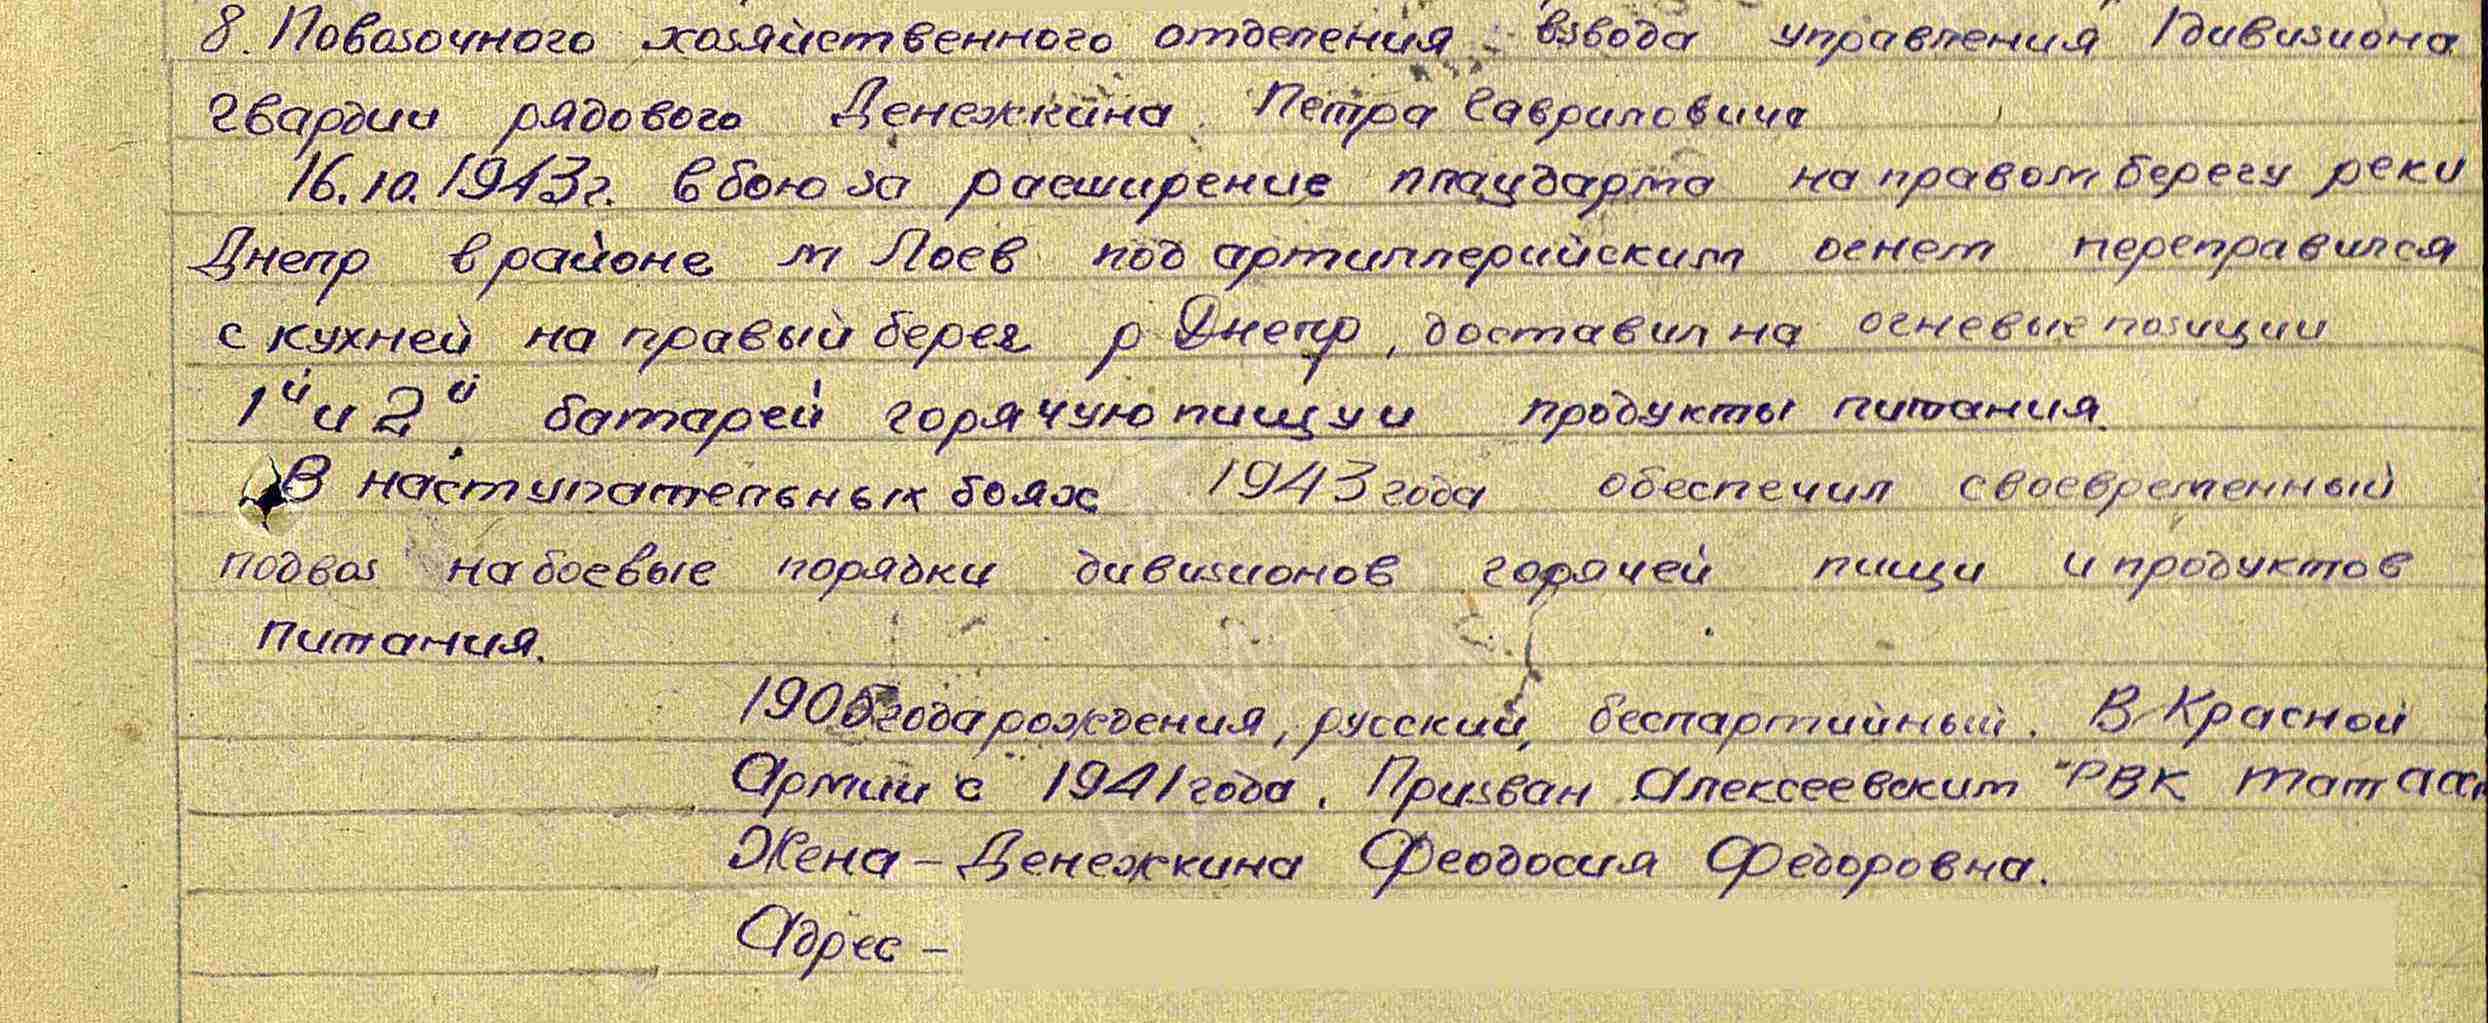 8. Повозочного хозяйственного отделения взвода управления 1 дивизиона
гвардии рядового Денежкина Петра Гавриловича
16.10.1943г. в бою за расширение плацдарма на правом берегу реки
Днепр в районе м Лоев под артиллерийским огнем переправился
с кухней на правый берег р Днепр, доставил на огневые позиции
1й и 2й батарей горячую пищу и продукты питания.
В наступательных боях 1943 года обеспечил своевременный
подвоз на боевые порядки дивизионов горячей пищи и продуктов
питания.
1905 года рождения, русский, беспартийный. В Красной
Армии с 1941 года. Призван Алексеевским РВК
Жена – Денежкина Феодосия Федоровна.
Адрес –